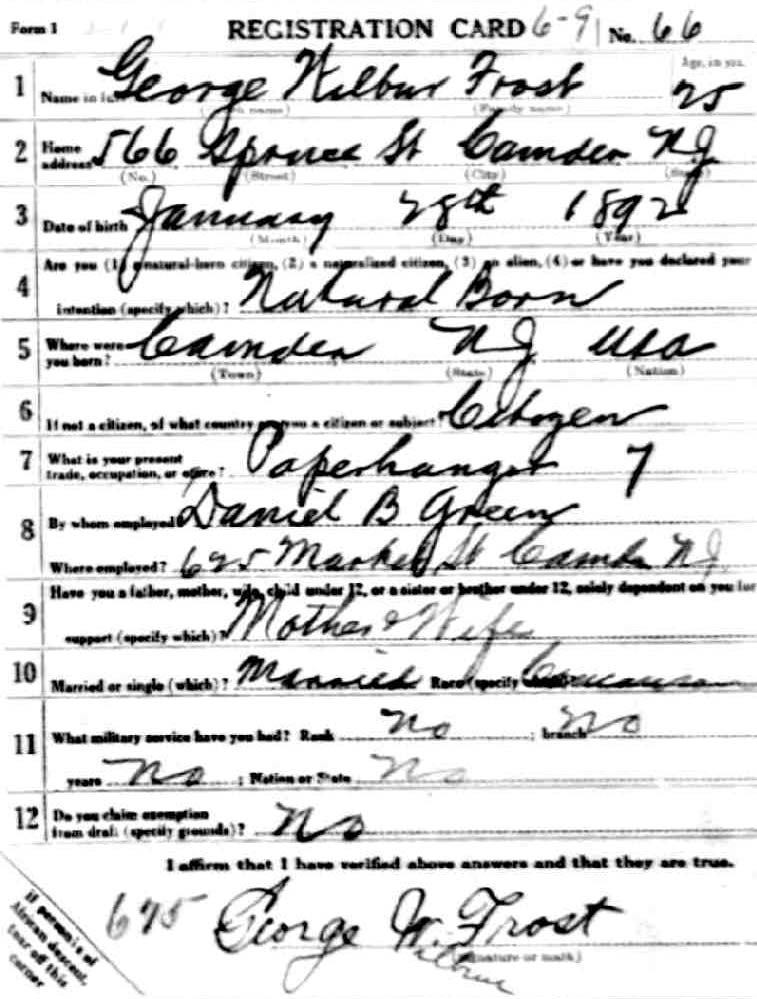 Form 1 REGISTRATION CARD 6-9 No. 66
1 Name in full George Wilbur Frost Age, in yrs. 25
(Given name) (Family name)
2 Home address 566 Spruce St Camden NJ
(No.) (Street) (City) (State)
3 Date of birth January 28th 1892
(Month) (Day) (Year)
Are you (1) a natural-born citizen, (2) a naturalized citizen, (3) an alien, (4) or have you declared your
4 intention (specify which)? Natural Born
5 Where were you born? Camden NJ USA
(Town) (State) (Nation)
6 If not a citizen, of what country are you a citizen or subject? Citozen
7 What is your present trade, occupation, or office? Paperhanger 7
8 By whom employed Daniel B Green
Where employed? 625 Market St Camden N.J.
9 Have you a father, mother, wife, child under 12, or a sister or brother under 12, solely dependent on you for
support (specify which)? Mother & Wife
10 Married or single (which)? Married Race (specify which)? Caucausan
11 What military service have you had? Rank No ; branch No
years No ; Nation or State No
12 Do you claim exemption from draft (specify grounds)? No
I affirm that I have verified above answers and that they are true.
George W. Frost
Wilbur
(Signature or mark)
If person is of
African descent,
tear off this
corner